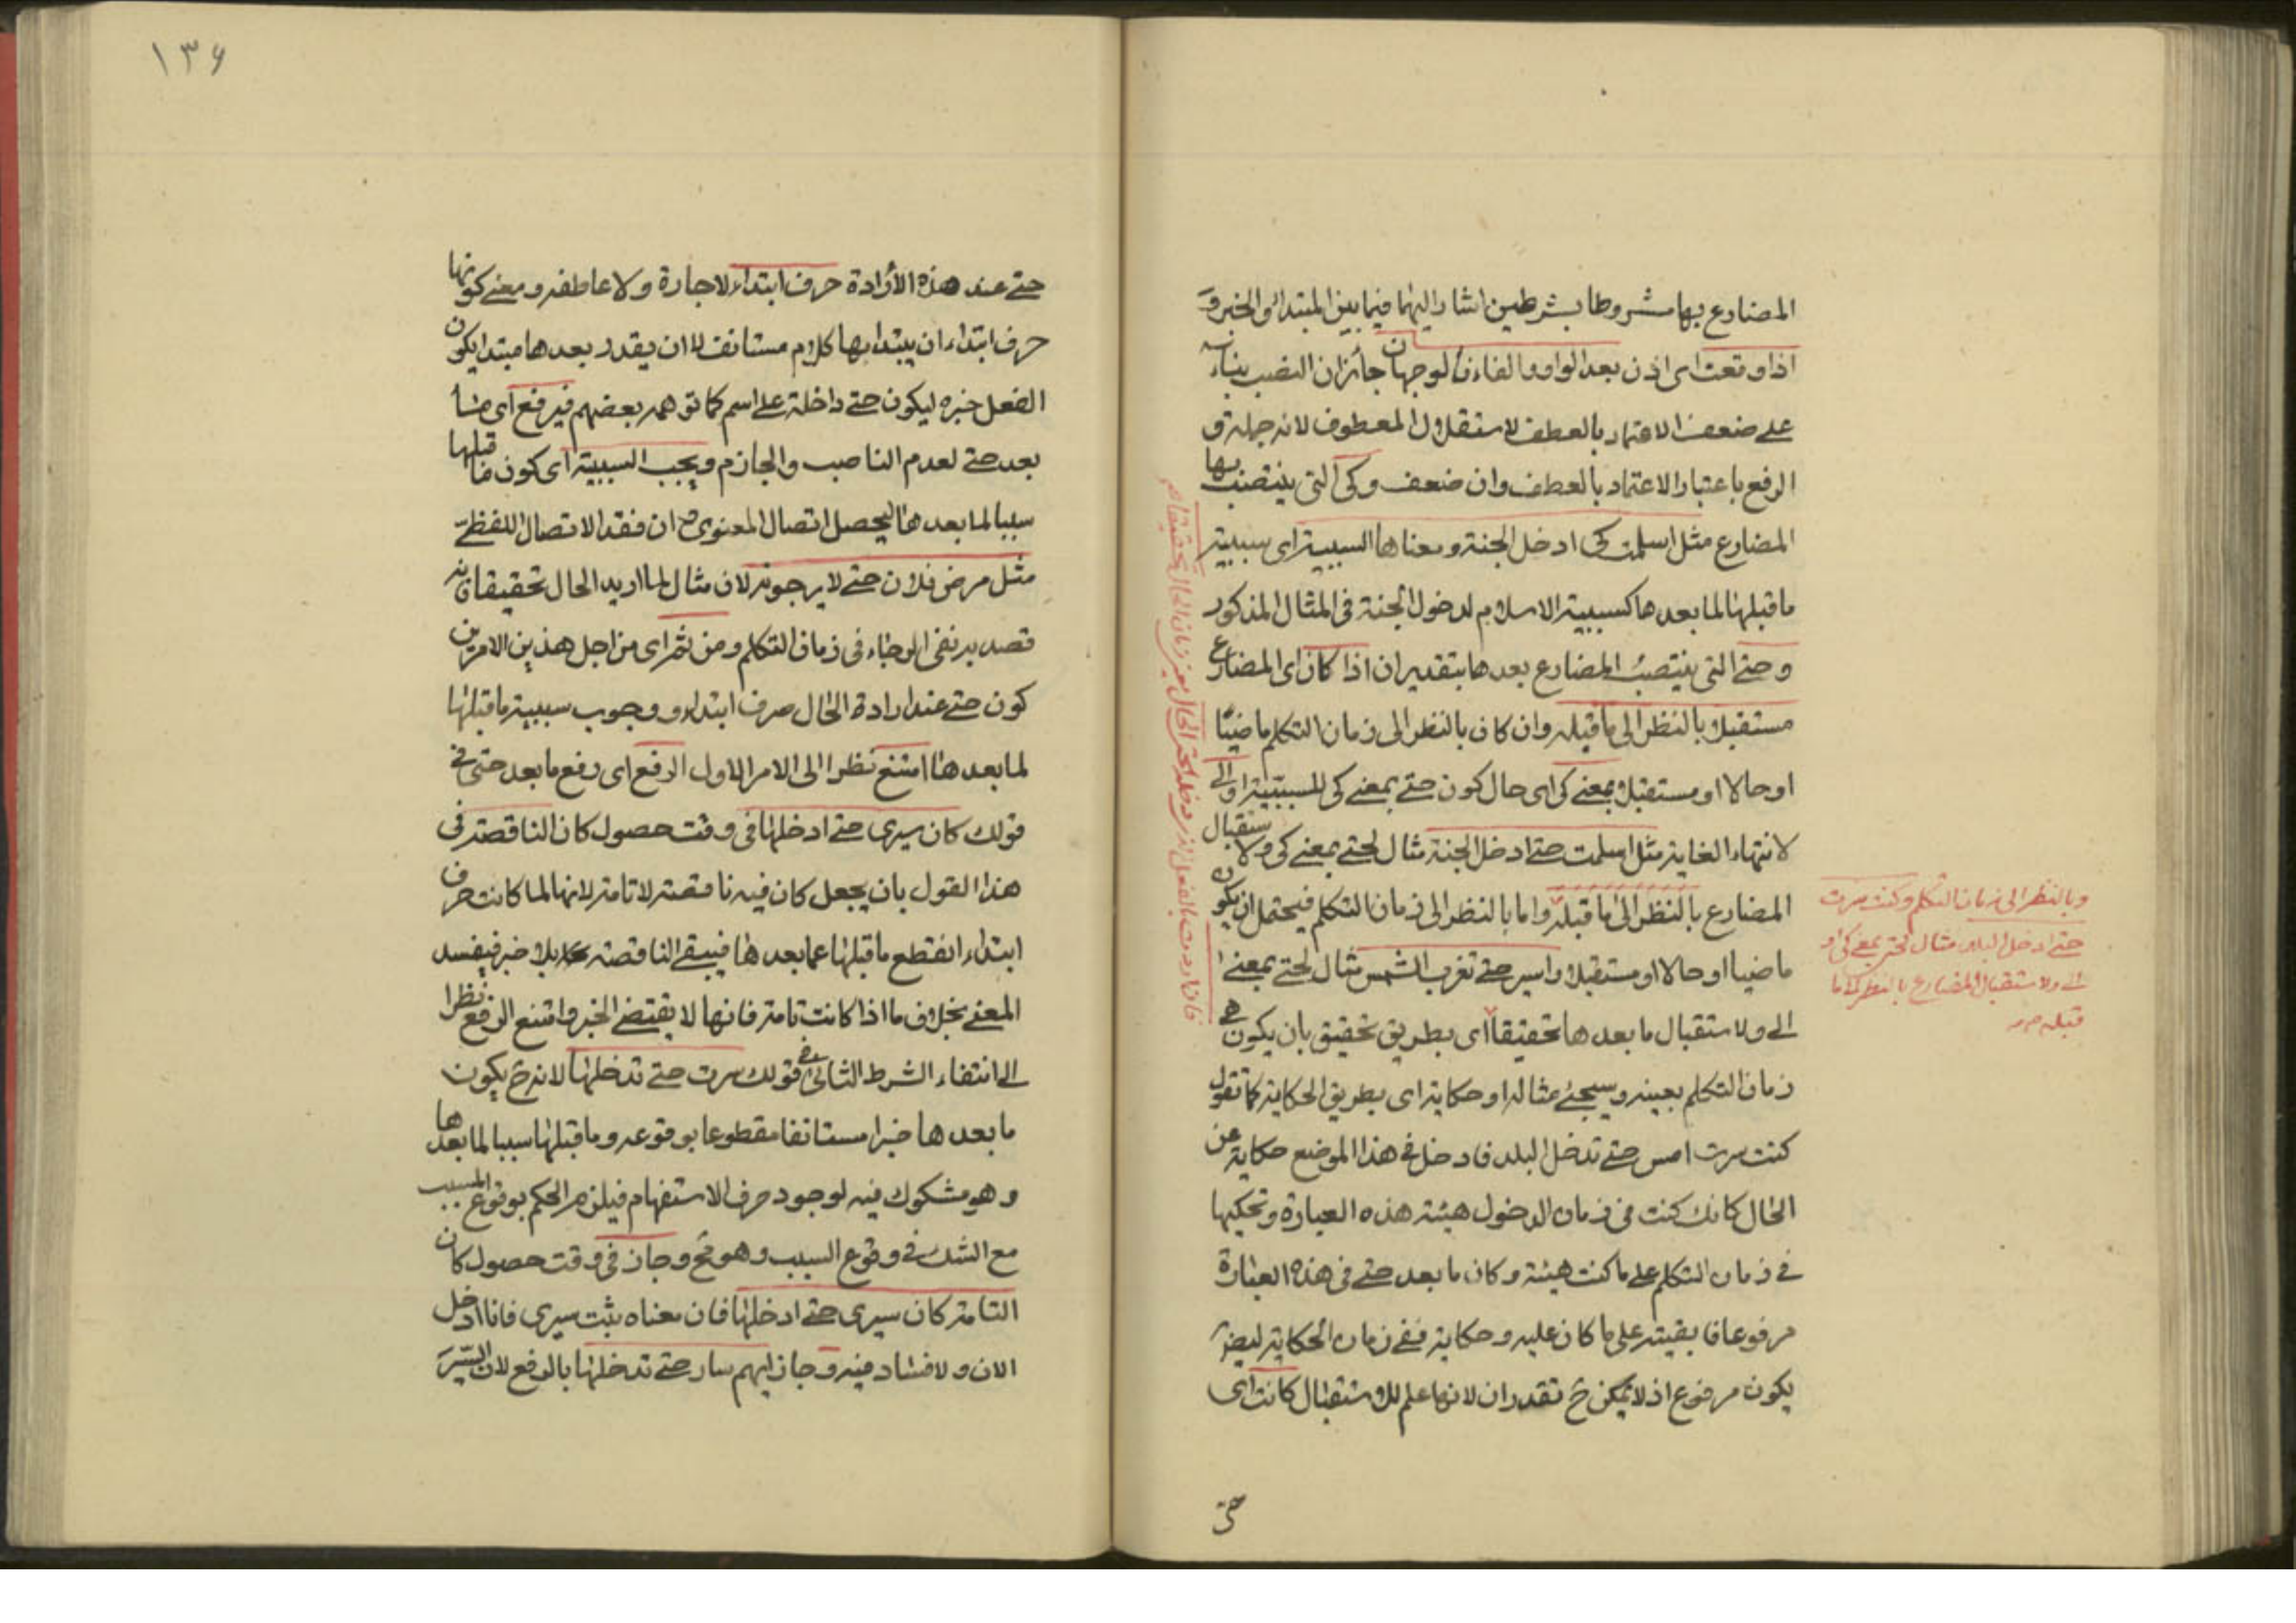 المضارع بها مشروطا بشرطين اشار اليهما فيما بين المبتدا والخبر و
اذا وقعت اى اذن بعد الواو والفاء فالوجهان جائزان النصب بناء
على ضعف الاعتماد بالعطف لاستقلال المعطوف لانه جملة و
الرفع باعتبار الاعتماد بالعطف وان ضعف وكى التى ينتصب بها
المضارع مثل اسلمت كى ادخل الجنة ومعناها السببية اى سببية
ما قبلها لما بعدها كسببية الاسلام لدخول الجنة فى المثال المذكور
وحتى التى ينتصب المضارع بعدها بتقدير ان اذا كان اى المضارع
مستقبلا بالنظر الى ما قبله وان كان بالنظر الى زمان التكلم ماضيا
او حالا او مستقبلا بمعنى كى اى حال كون حتى بمعنى كى للسببية او الى
لانتهاء الغاية مثل اسلمت حتى ادخل الجنة مثال لحتى بمعنى كى ولاستقبال
المضارع بالنظر الى ما قبله واما بالنظر الى زمان التكلم فيحتمل ان يكون
ماضيا او حالا او مستقبلا واسير حتى تغرب الشمس مثال لحتى بمعنى
الى ولاستقبال ما بعدها تحقيقا اى بطريق تحقيق بان يكون هى
زمان التكلم بعينه وسيجئ مثاله او حكاية اى بطريق الحكاية كما تقول
كنت سرت امس حتى تدخل البلد فادخل فى هذا الموضع حكاية عن
الحال كانك كنت فى زمان الدخول هيئة هذه العبارة وتحكيها
فى زمان التكلم على ما كنت هيئة وكان ما بعد حتى فى هذه العبارة
مرفوعا فابقيته على ما كان عليه وحكاية ففى زمان الحكاية ايضا
يكون مرفوع اذ لا يمكن ح تقدر ان لانها علم للاستقبال كانت اى
وبالنظر الى زمان التكلم وكنت سرت
حتى ادخل البلد مثال لحتى بمعنى كى او
الى ولاستقبال المضارع بالنظر الى ما
قبله
فان اردت بالفعل الذى دخله حتى الحال يعنى زمان الحال تحقيقا
حتى
١٣۶
حتى عند هذه الأرادة حرف ابتداء لا جارة ولا عاطفة ومعنى كونها
حرف ابتداء ان يبتدا بها كلام مستانف لا ان يقدر بعدها مبتدا يكون
الفعل خبره ليكون حتى داخلة على اسم كما توهمه بعضهم فيرفع اى ما
بعد حتى لعدم الناصب والجازم ويجب السببية اى كون ما قبلها
سببا لما بعدها ليحصل اتصال المعنوى ح ان فقد الاتصال اللفظى
مثل مرض فلان حتى لا يرجونه لان مثال لما اريد الحال تحقيقا فانه
قصد به نفى الرجاء فى زمان التكلم ومن ثم اى من اجل هذين الامرين
كون حتى عند ارادة الحال حرف ابتداء ووجوب سببية ما قبلها
لما بعدها امتنع نظرا الى الامر الاول الرفع اى رفع ما بعد حتى فى
قولك كان سيرى حتى ادخلها فى وقت حصول كان الناقصة فى
هذا القول بان يجعل كان فيه ناقصة لا تامة لانها لما كانت حرف
ابتداء انقطع ما قبلها عما بعدها فيبقى الناقصة بلا خبر فيفسد
المعنى بخلاف ما اذا كانت تامة فانها لا يقتضى الخبر وامتنع الرفع نظرا
الى انتفاء الشرط الثانى فى قولك سرت حتى تدخلها لانه ح يكون
ما بعدها خبرا مستانفا مقطوعا بوقوعه وما قبلها سببا لما بعدها
وهو مشكوك فيه لوجود حرف الاستفهام فيلزم الحكم بوقوع المسبب
مع الشك فى وقوع السبب وهو مح وجاز فى وقت حصول كان
التامة كان سيرى حتى ادخلها فان معناه ثبت سيرى فانا ادخل
الان ولا فساد فيه وجاز ايهم سار حتى تدخلها بالرفع لان السير